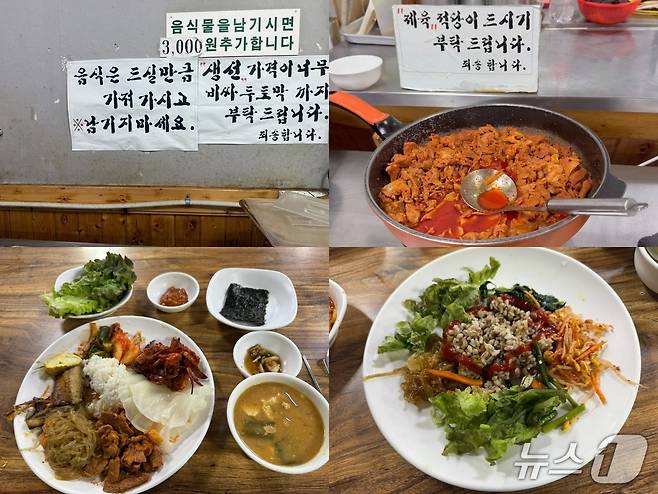 음식물을남기시면
3,000원추가합니다
음식은 드실만큼
가져 가시고
※남기지마세요.
"생선" 가격이너무
비싸-두토막 까지
부탁드립니다.
죄송합니다.
"제육" 적당이 드시기
부탁드립니다.
죄송합니다.
뉴스1